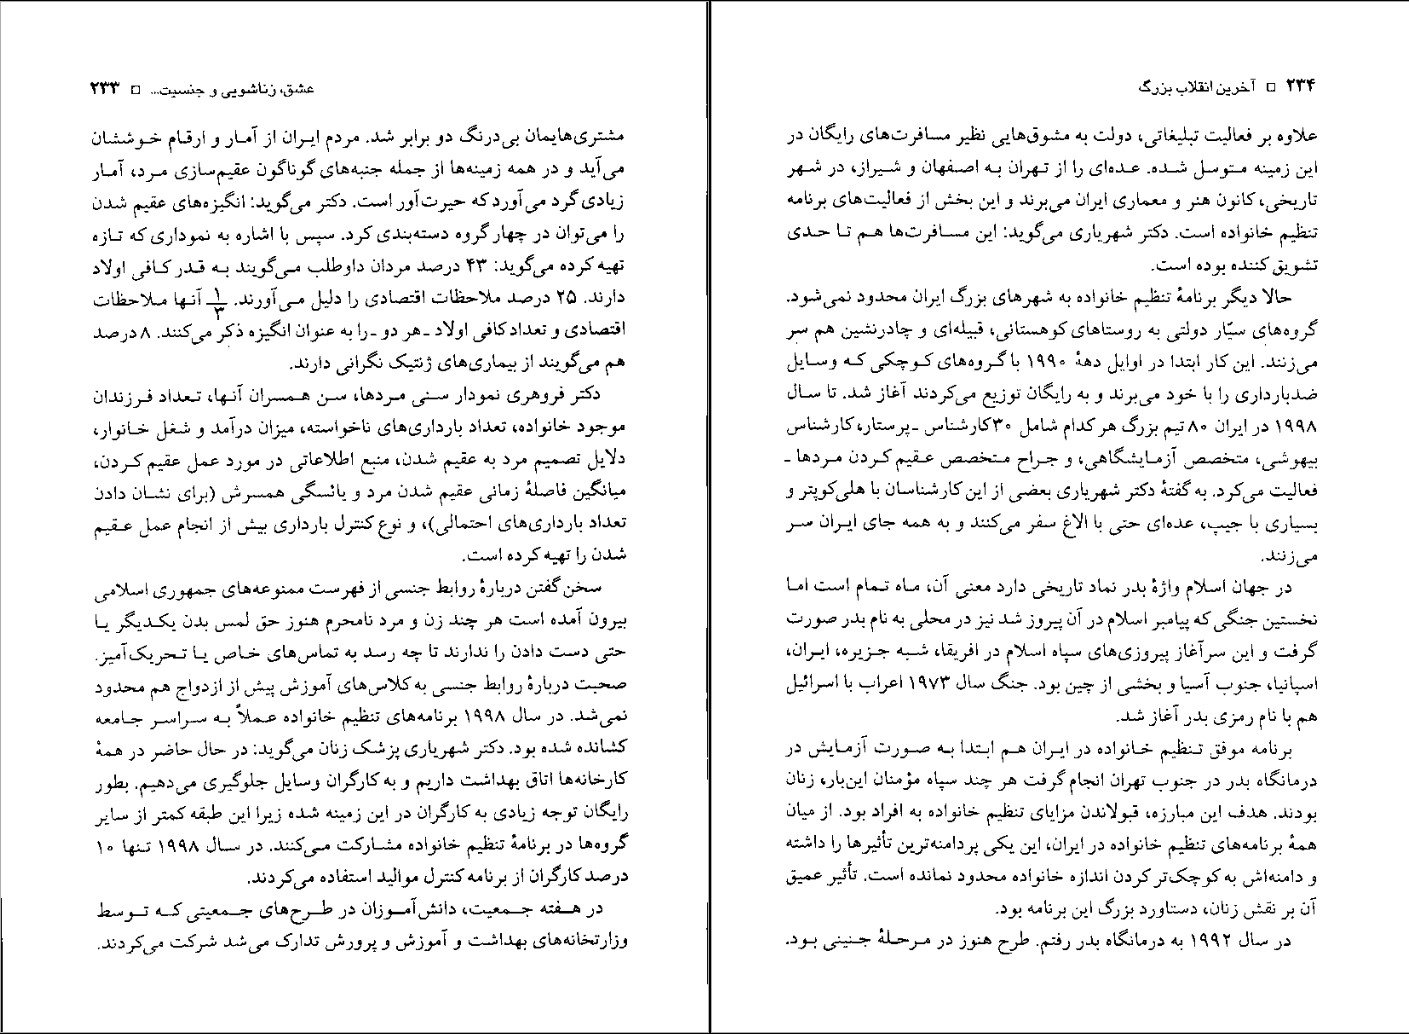 عشق، زناشویی و جنسیت... □ ۲۳۳
مشتری‌هایمان بی‌درنگ دو برابر شد. مردم ایران از آمار و ارقام خوششان
می‌آید و در همه زمینه‌ها از جمله جنبه‌های گوناگون عقیم‌سازی مرد، آمار
زیادی گرد می‌آورد که حیرت‌آور است. دکتر می‌گوید: انگیزه‌های عقیم شدن
را می‌توان در چهار گروه دسته‌بندی کرد. سپس با اشاره به نموداری که تازه
تهیه کرده می‌گوید: ۴۳ درصد مردان داوطلب می‌گویند به قدر کافی اولاد
دارند. ۲۵ درصد ملاحظات اقتصادی را دلیل می‌آورند. ۱/۳ آنها ملاحظات
اقتصادی و تعداد کافی اولاد ـ هر دو ـ را به عنوان انگیزه ذکر می‌کنند. ۸ درصد
هم می‌گویند از بیماری‌های ژنتیک نگرانی دارند.
دکتر فروهری نمودار سنی مردها، سن همسران آنها، تعداد فرزندان
موجود خانواده، تعداد بارداری‌های ناخواسته، میزان درآمد و شغل خانوار،
دلایل تصمیم مرد به عقیم شدن، منبع اطلاعاتی در مورد عمل عقیم کردن،
میانگین فاصلهٔ زمانی عقیم شدن مرد و یائسگی همسرش (برای نشان دادن
تعداد بارداری‌های احتمالی)، و نوع کنترل بارداری بیش از انجام عمل عقیم
شدن را تهیه کرده است.
سخن گفتن دربارهٔ روابط جنسی از فهرست ممنوعه‌های جمهوری اسلامی
بیرون آمده است هر چند زن و مرد نامحرم هنوز حق لمس بدن یکدیگر یا
حتی دست دادن را ندارند تا چه رسد به تماس‌های خاص یا تحریک‌آمیز.
صحبت دربارهٔ روابط جنسی به کلاس‌های آموزش پیش از ازدواج هم محدود
نمی‌شد. در سال ۱۹۹۸ برنامه‌های تنظیم خانواده عملاً به سراسر جامعه
کشانده شده بود. دکتر شهریاری پزشک زنان می‌گوید: در حال حاضر در همهٔ
کارخانه‌ها اتاق بهداشت داریم و به کارگران وسایل جلوگیری می‌دهیم. بطور
رایگان توجه زیادی به کارگران در این زمینه شده زیرا این طبقه کمتر از سایر
گروه‌ها در برنامهٔ تنظیم خانواده مشارکت می‌کنند. در سال ۱۹۹۸ تنها ۱۰
درصد کارگران از برنامه کنترل موالید استفاده می‌کردند.
در هفته جمعیت، دانش‌آموزان در طرح‌های جمعیتی که توسط
وزارتخانه‌های بهداشت و آموزش و پرورش تدارک می‌شد شرکت می‌کردند.
۲۳۴ □ آخرین انقلاب بزرگ
علاوه بر فعالیت تبلیغاتی، دولت به مشوق‌هایی نظیر مسافرت‌های رایگان در
این زمینه متوسل شده. عده‌ای را از تهران به اصفهان و شیراز، در شهر
تاریخی، کانون هنر و معماری ایران می‌برند و این بخش از فعالیت‌های برنامه
تنظیم خانواده است. دکتر شهریاری می‌گوید: این مسافرت‌ها هم تا حدی
تشویق کننده بوده است.
حالا دیگر برنامهٔ تنظیم خانواده به شهرهای بزرگ ایران محدود نمی‌شود.
گروه‌های سیّار دولتی به روستاهای کوهستانی، قبیله‌ای و چادرنشین هم سر
می‌زنند. این کار ابتدا در اوایل دههٔ ۱۹۹۰ با گروه‌های کوچکی که وسایل
ضدبارداری را با خود می‌برند و به رایگان توزیع می‌کردند آغاز شد. تا سال
۱۹۹۸ در ایران ۸۰ تیم بزرگ هر کدام شامل ۳۰ کارشناس ـ پرستار، کارشناس
بیهوشی، متخصص آزمایشگاهی، و جراح متخصص عقیم کردن مردها ـ
فعالیت می‌کرد. به گفتهٔ دکتر شهریاری بعضی از این کارشناسان با هلی‌کوپتر و
بسیاری با جیپ، عده‌ای حتی با الاغ سفر می‌کنند و به همه جای ایران سر
می‌زنند.
در جهان اسلام واژهٔ بدر نماد تاریخی دارد معنی آن، ماه تمام است اما
نخستین جنگی که پیامبر اسلام در آن پیروز شد نیز در محلی به نام بدر صورت
گرفت و این سرآغاز پیروزی‌های سپاه اسلام در افریقا، شبه جزیره، ایران،
اسپانیا، جنوب آسیا و بخشی از چین بود. جنگ سال ۱۹۷۳ اعراب با اسرائیل
هم با نام رمزی بدر آغاز شد.
برنامه موفق تنظیم خانواده در ایران هم ابتدا به صورت آزمایش در
درمانگاه بدر در جنوب تهران انجام گرفت هر چند سپاه مؤمنان این‌بار، زنان
بودند. هدف این مبارزه، قبولاندن مزایای تنظیم خانواده به افراد بود. از میان
همهٔ برنامه‌های تنظیم خانواده در ایران، این یکی پردامنه‌ترین تأثیرها را داشته
و دامنه‌اش به کوچک‌تر کردن اندازه خانواده محدود نمانده است. تأثیر عمیق
آن بر نقش زنان، دستاورد بزرگ این برنامه بود.
در سال ۱۹۹۲ به درمانگاه بدر رفتم. طرح هنوز در مرحلهٔ جنینی بود.